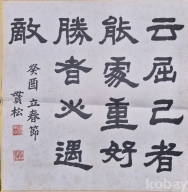 云屈己者
能處重好
勝者必遇
敵
癸酉立春節
貫松
kobay